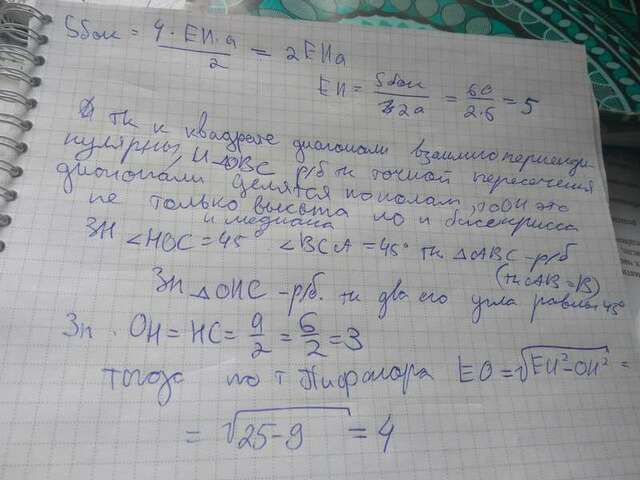 Sбок = 4·EH·a/2 = 2EHa
EH = Sбок/2a = 60/2·6 = 5
Тк к квадрате диагонали взаимно перпенди-
кулярны, и △OBC р/б тк точкой пересечения
диагонали делятся пополам, то OH это
не только высота но и биссектриса
и медиана
Зн ∠HOC = 45° ∠BCA = 45° тк △ABC - р/б
(тк AB = B)
Зн △OHC - р/б. тк два его угла равны 45°
Зн. OH = HC = a/2 = 6/2 = 3
тогда по т Пифагора EO = √EH² - OH² =
= √25 - 9 = 4